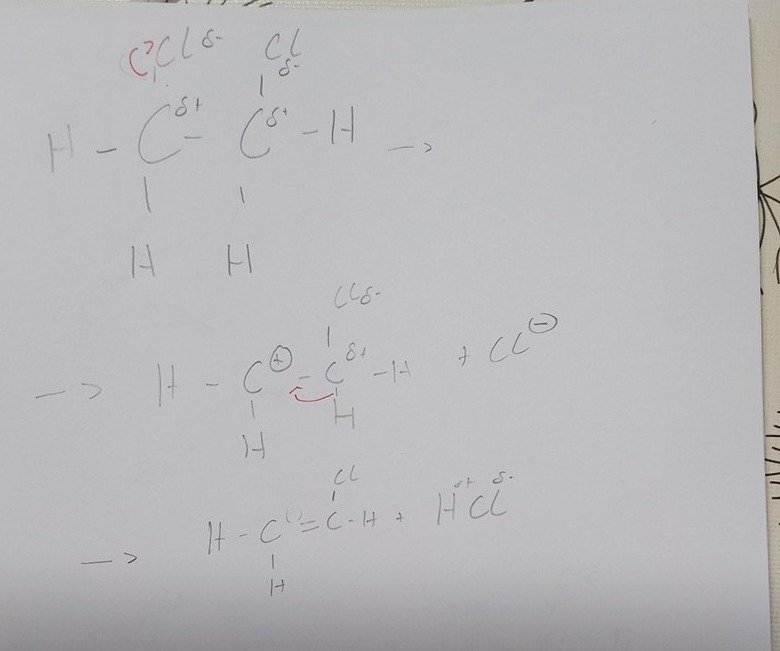 Clδ- Cl
δ-
H - Cδ+ - Cδ+ - H →
| |
H H
Clδ-
|
→ H - C⊕ - Cδ+ - H + Cl⊖
| |
H H
Cl δ+ δ-
|
→ H - C = C - H + HCl
|
H